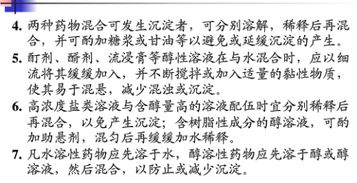 4. 两种药物混合可发生沉淀者，可分别溶解，稀释后再混
合，并可酌加糖浆或甘油等以避免或延缓沉淀的产生。
5. 酊剂、醑剂、流浸膏等醇性溶液在与水混合时，应以细
流将其缓缓加入，并不断搅拌或加入适量的黏性物质，
使其易于混悬，减少混浊或沉淀。
6. 高浓度盐类溶液与含醇量高的溶液配伍时宜分别稀释后
再混合，以免产生沉淀；含树脂性成分的醇溶液，可酌
加助悬剂，混匀后再缓缓加水稀释。
7. 凡水溶性药物应先溶于水，醇溶性药物应先溶于醇或醇
溶液，然后混合，以防止或减少沉淀。